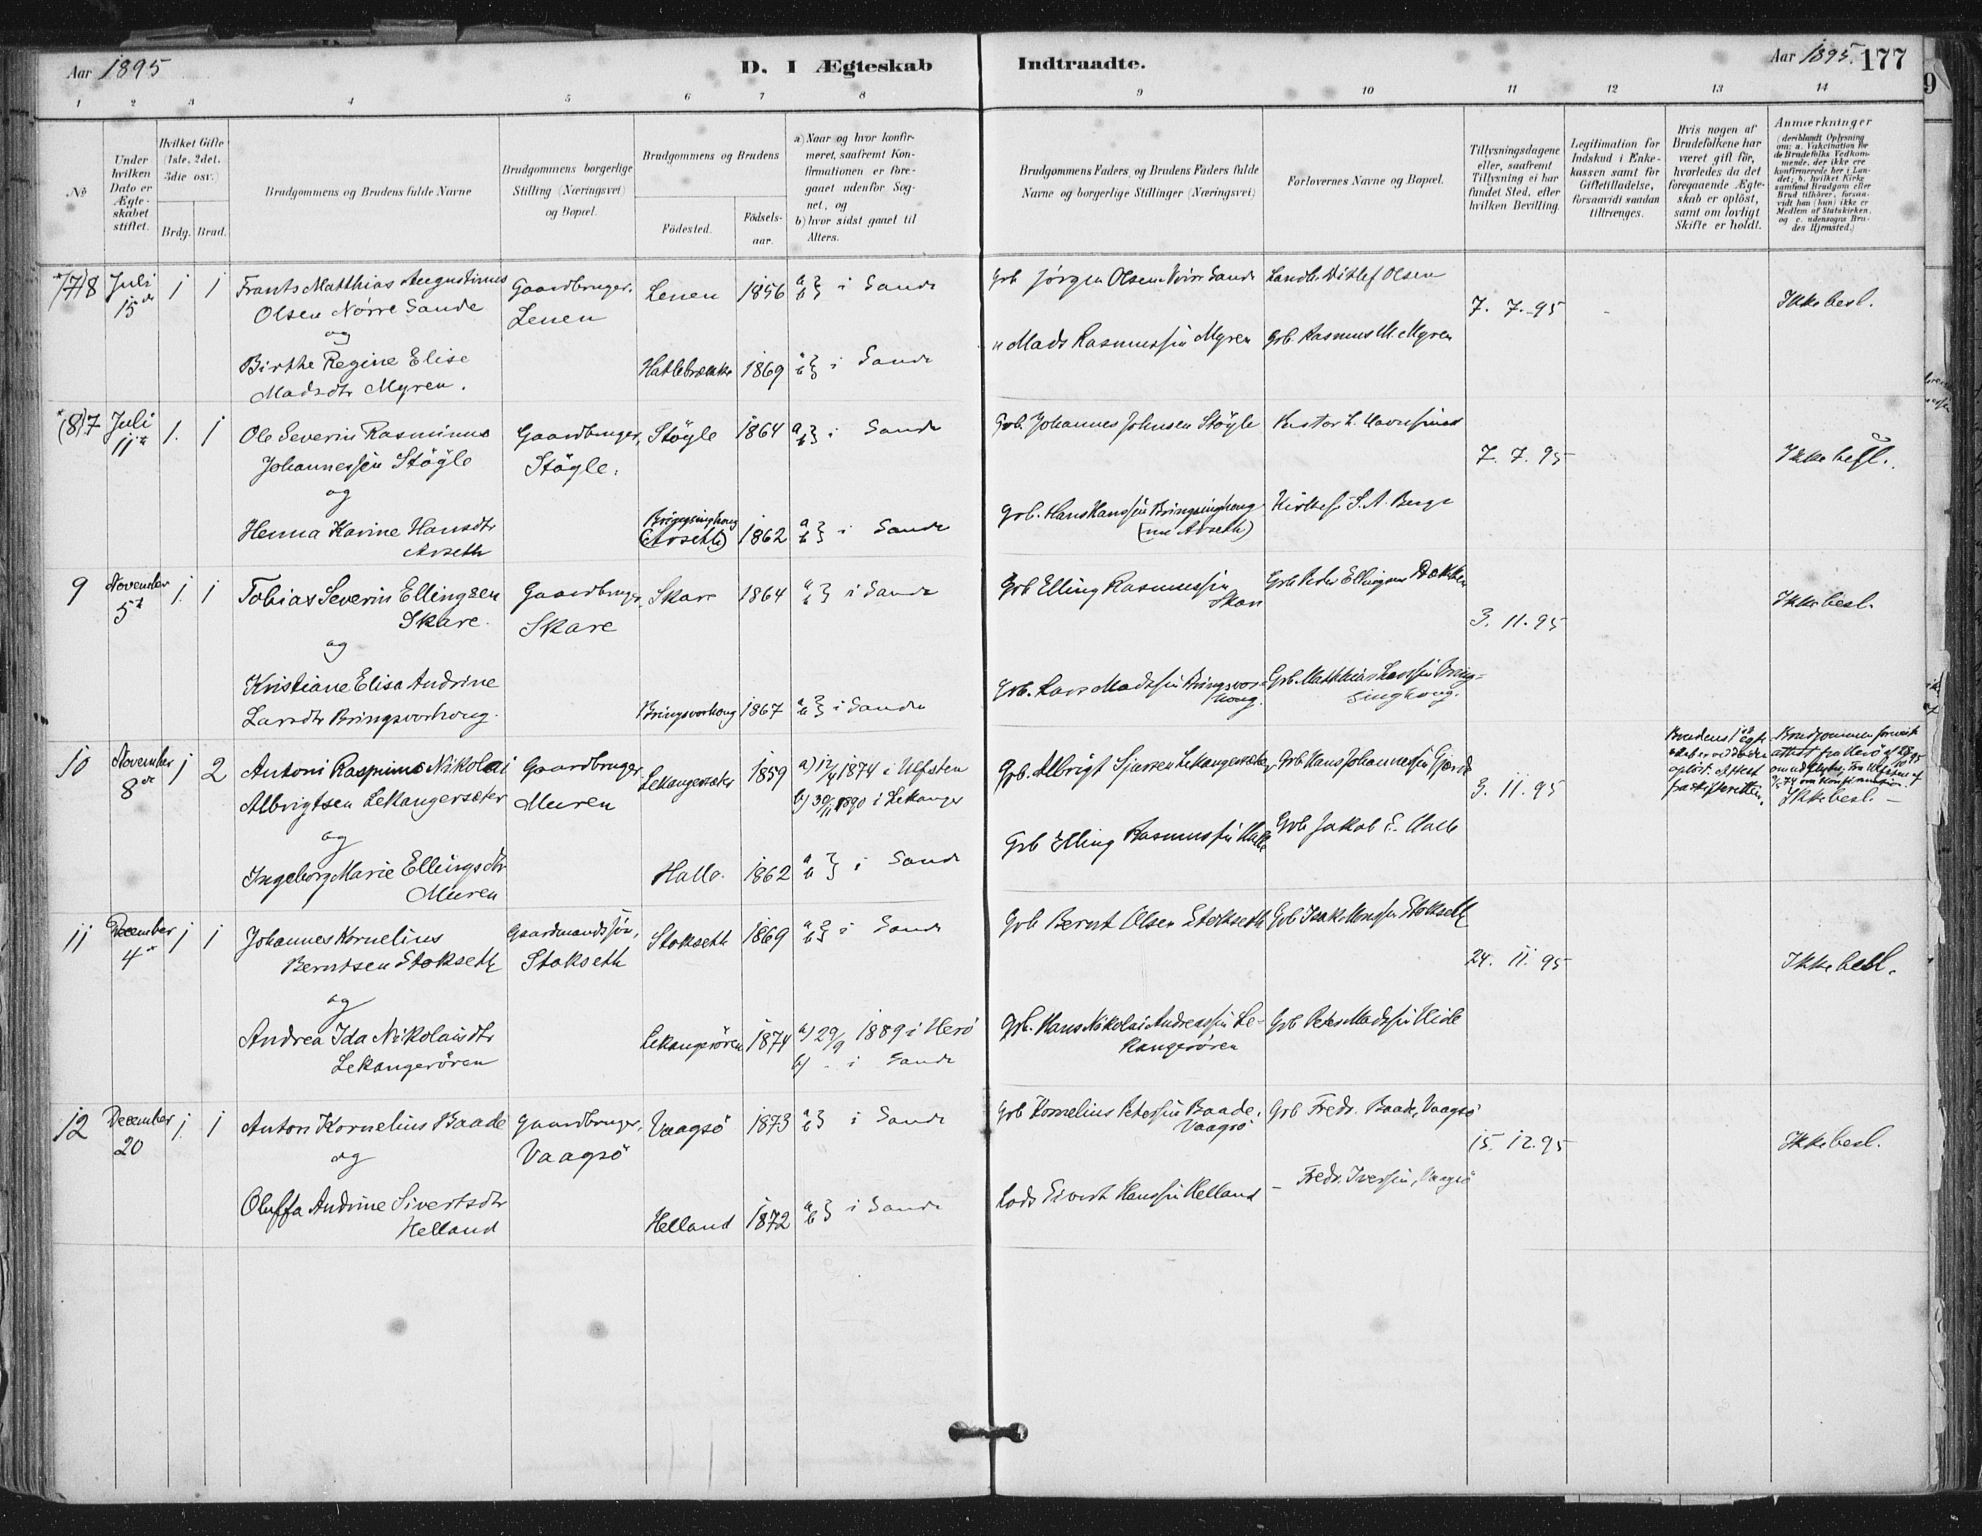 Aar 1895
D. I Ægteskab Indtraadte.
Aar 1895. 177
1 2 3 4 5 6 7 8 9 10 11 12 13 14
No
Under hvilken Dato er Ægteskabet stiftet.
Hvilket Gifte (1ste, 2det, 3die osv.)
Brdg. Brud.
Brudgommens og Brudens fulde Navne
Brudgommens borgerlige Stilling (Næringsvei) og Bopæl.
Brudgommens og Brudens
Födested.
Födselsaar.
a) Naar og hvor konfirmeret, saafremt Konfirmationen er foregaaet udenfor Sognet, og
b) hvor sidst gaaet til Alters.
Brudgommens Faders og Brudens Faders fulde Navne og borgerlige Stillinger (Næringsvei)
Forlovernes Navne og Bopæl.
Tillysningsdagene eller, saafremt Tillysning ei har fundet Sted, efter hvilken Bevilling.
Legitimation for Indskud i Enkekassen samt for Giftetilladelse, forsaavidt saadan tiltrænges.
Hvis nogen af Brudefolkene har været gift för, hvorledes da det foregaaende Ægteskab er oplöst, samt om lovligt Skifte er holdt.
Anmærkninger (deriblandt Oplysning om: a. Vakcination for de Brudefolks Vedkommende, der ikke ere konfirmerede her i Landet; b. hvilket Kirkesamfund Brudgom eller Brud tilhörer, forsaavidt han (hun) ikke er Medlem af Statskirken, og c. udensogns Brudes Hjemsted.)
(7)8 Juli 15de 1 1 Frants Matthias Augustinus Olsen Nörre Sande Gaardbruger, Lenen Lenen 1856 a b } i Sande Grb Jörgen Olsen Nörre Sande Landh. Ditlef Olsen 7. 7. 95 Ikke besl.
og
Birthe Regine Elise Madsdtr Myren. Hatlebrække 1869 a b } i Sande " Mads Rasmussen Myren Grb. Rasmus M. Myren
(8)7 Juli 11te 1. 1 Ole Severin Rasminus Johannessen Stöyle Gaardbruger, Stöyle. Stöyle 1864 a b } i Sande Grb. Johannes Johnsen Stöyle 7. 7. 95 Ikke besl.
og
Henna Karine Hansdtr Aarseth Bringsinghoug (Aarseth) 1862 a b } i Sande Grb. Hans Hanssen Bringsinghoug (nu Aarseth) Kirkes. S. A. Berge
9 November 5te 1. 1 Tobias Severin Ellingsen Skare. Gaardbruger Skare Skare 1864 a b } i Sande Grb Elling Rasmussen Skare Grb. Peder Ellingsen Dekken 3. 11. 95 Ikke besl.
og
Kristiane Elisa Andrine Larsdtr Bringsvorhoug. Bringsvorhoug 1867 a b } i Sande Grb. Lars Madssen Bringsvorhoug. Grb. Matthias Larssen Bringsinghoug.
10 November 8de 1 2 Antoni Rasmus Nikolai Albrigtsen Lekangersæter Gaardbruger Muren Lekangersæter 1859 a) 12/4 1874 i Ulfsten b) 30/11 1890 i Lekanger Grb. Albrigt Sjursen Lekangersæter Grb Hans Johannessen Gjerde 3. 11. 95 Brudens 1ste Ægteskab er ved Döden oplöst. Attest fra skifteretten. Ikke besl. –
og
Ingeborg Marie Ellingsdtr Muren Halle. 1862 a b } i Sande Grb Elling Rasmussen Halle Grb Jakob E. Halle
11 December 4de 1 1 Johannes Kornelius Berntsen Stokseth Gaardmandssön, Stokseth Stokseth 1869 a b } i Sande Grb Bernt Olsen Stokseth Grb Isak Monssen Stokseth 24. 11. 95 Ikke besl.
og
Andrea Ida Nikolaisdtr Lekangerören Lekangerören 1874 a) 29/9 1889 i Herö b) i Sande Grb. Hans Nikolai Andreassen Lekangerören Grb Peter Madssen Heide
12 December 20 1. 1 Anton Kornelius Baade Gaardbruger, Vaagsö Vaagsö 1873 a b } i Sande Grb Kornelius Peterssen Baade, Vaagsö Grb Fredr. Baade, Vaagsö 15. 12. 95 Ikke besl.
og
Oluffa Andrine Sivertsdtr Helland Helland 1872 a b } i Sande Lods Sivert Hanssen Helland – Fredr. Iverssen, Vaagsö